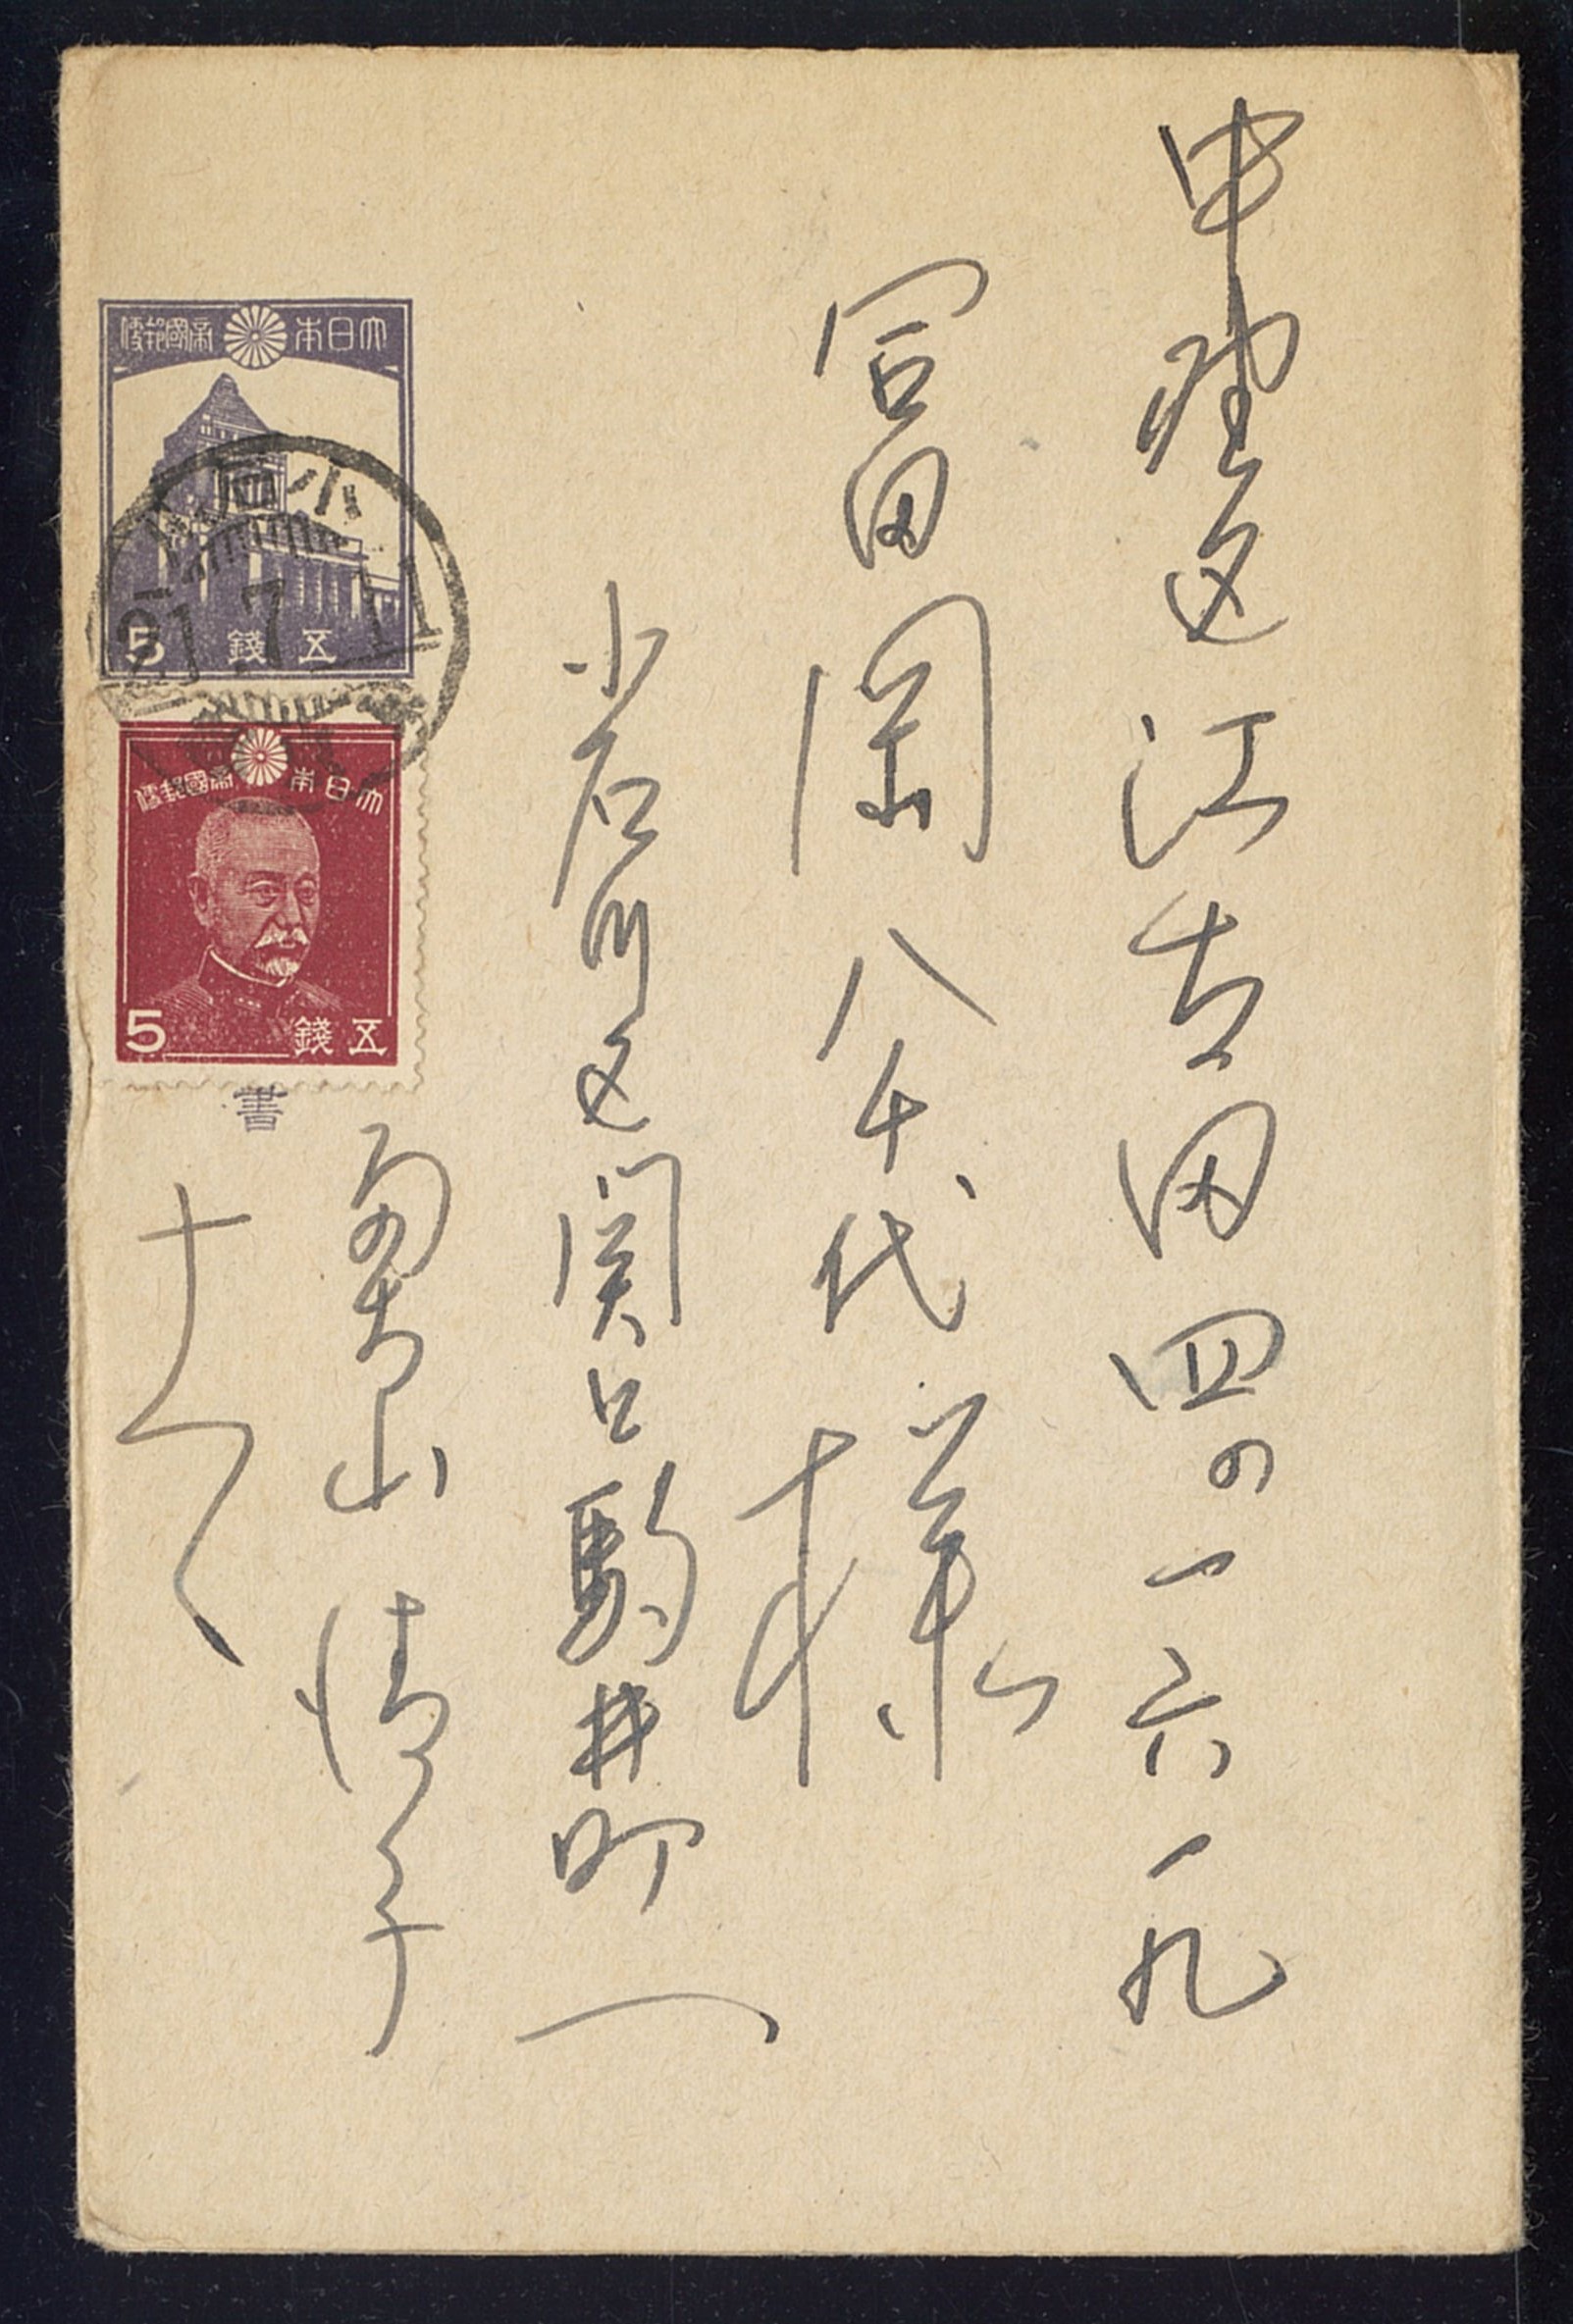 中野区江古田四の一六一九
冨田 八千代様
小石川区関口駒井町一
山 清子
大日本帝國郵便
五錢 5
小石川
21.7.11
大日本帝國郵便
五錢 5
書